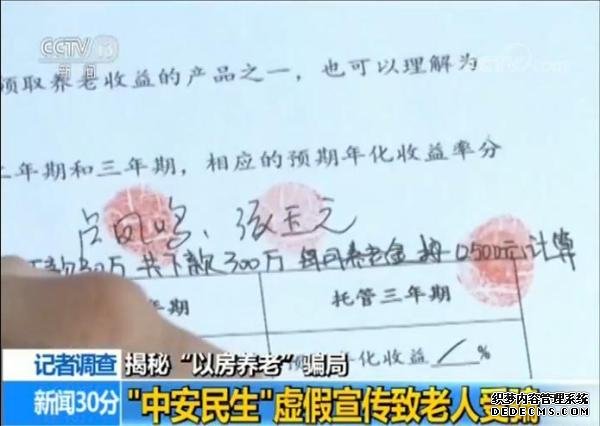 CCTV 13
新闻
领取养老收益的产品之一,也可以理解为
二年期和三年期,相应的预期年化收益率分
张玉元
共下款300万 每月养老金 按 计算
年期
托管三年期
年化收益 %
记者调查
揭秘“以房养老”骗局
新闻30分
"中安民生"虚假宣传致老人受骗